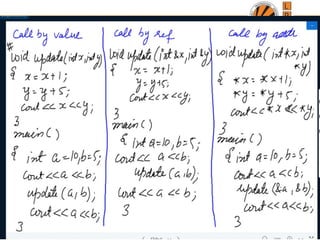 Call by value
#
void update(int x, int y)
{ x = x+1;
y = y+5;
cout << x << y;
}
main()
{ int a=10, b=5;
cout << a << b;
update(a,b);
cout << a << b;
}
call by ref
void update(int &x, int &y)
{ x = x+1;
y=y+5;
cout << x << y;
}
main()
{ int a=10, b=5;
cout << a << b;
update(a,b);
cout << a << b;
}
Call by addr
void update(int *x, int
*y)
{ *x = *x+1;
*y = *y+5;
cout << *x << *y;
}
main()
{ int a=10, b=5;
cout << a << b;
update(&a, &b);
cout << a << b;
}